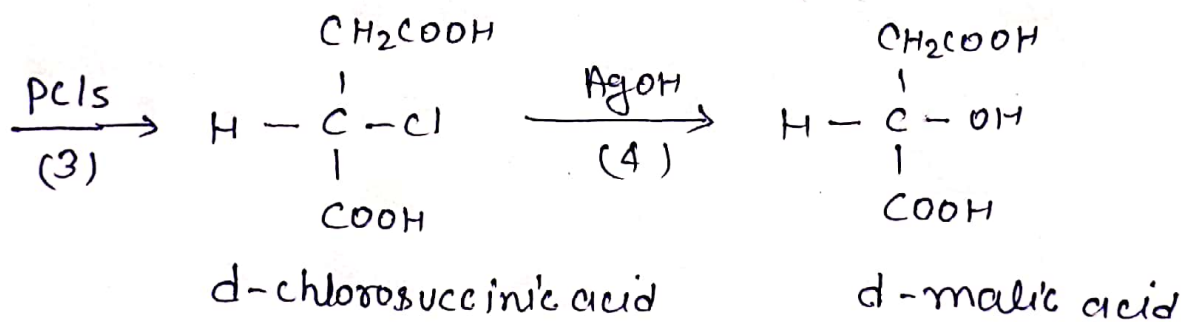 CH2COOH CH2COOH
PCl5 | AgOH |
H — C — Cl H — C — OH
(3) | (4) |
COOH COOH
d-chlorosuccinic acid d-malic acid